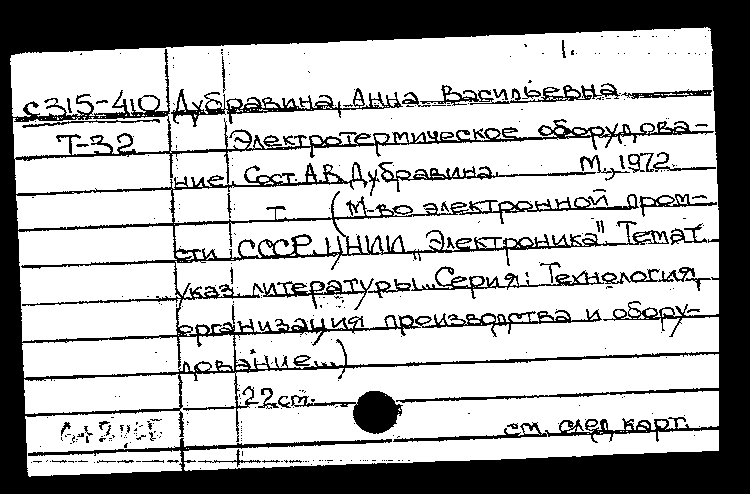 1.
С315-410 Дубравина, Анна Васильевна
Т-32 Электротермическое оборудова-
ние. Сост. А.В. Дубравина. М., 1972.
т. (М-во электронной пром-
сти СССР. ЦНИИ „Электроника". Темат.
указ. литературы. Серия: Технология,
организация производства и обору-
дование...)
22 см.
см. след. карт.